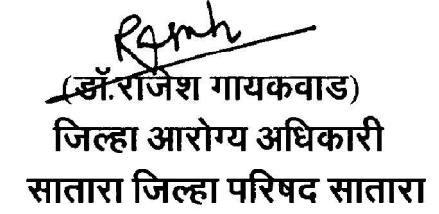 (डॉ.राजेश गायकवाड)
जिल्हा आरोग्य अधिकारी
सातारा जिल्हा परिषद सातारा